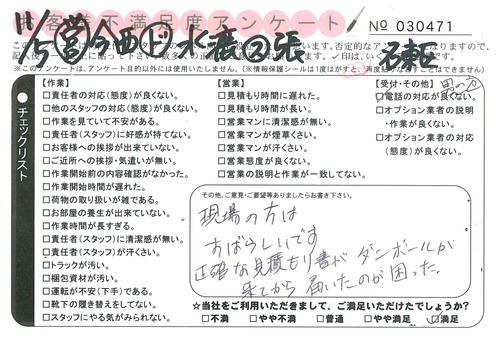 お客様不満足度アンケート
№ 030471
11/5 営 今西 水廣 ② 張
※このアンケートは、アンケート目的以外には使用いたしません。(※情報保護シールは1度はがすと、再度貼りなおすことはできません)
チェックリスト
【作業】
□責任者の対応(態度)が良くない。
□他のスタッフの対応(態度)が良くない。
□作業を見ていて不安がある。
□責任者(スタッフ)に好感が持てない。
□お客様への挨拶が出来ていない。
□ご近所への挨拶・気遣いが無い。
□作業開始前の内容確認がなかった。
□作業開始時間が遅れた。
□荷物の取り扱いが雑である。
□お部屋の養生が出来ていない。
□作業時間が長すぎる。
□責任者(スタッフ)に清潔感が無い。
□責任者(スタッフ)が汗くさい。
□トラックが汚い。
□梱包資材が汚い。
□運転が不安(下手)である。
□靴下の履き替えをしてない。
□スタッフにやる気がみられない。
【営業】
□見積もり時間に遅れた。
□見積もり時間が長い。
□営業マンに清潔感が無い。
□営業マンが煙草くさい。
□営業マンが汗くさい。
□営業態度が良くない。
□営業の説明と作業が一致してない。
【受付・その他】 男の方
□電話の対応が良くない。
□オプション業者の説明・作業が良くない。
□オプション業者の対応(態度)が良くない。
その他、ご意見・ご要望等ありましたらお書き下さい。
現場の方は
すばらしいです
正確な見積もり書が ダンボールが
来てから 届いたのが 困った。
☆当社をご利用いただきまして、ご満足いただけたでしょうか?
□不満 □やや不満 □普通 □やや満足 ☑満足